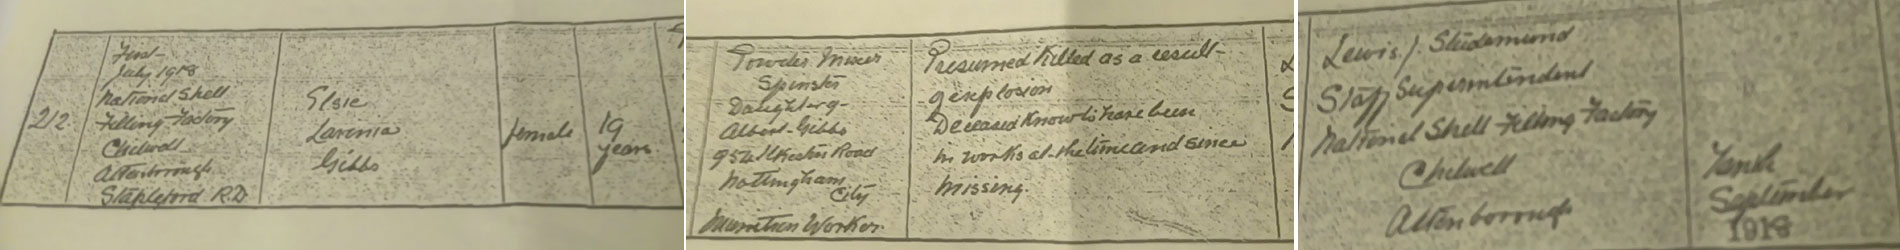 212
First
July 1918
National Shell
Filling Factory
Chilwell
Attenborough
Stapleford R.D
Elsie
Lavinia
Gibbs
female
19
years
Powder Mixer
Spinster
Daughter of
Albert Gibbs
95 Ilkeston Road
Nottingham
City
Munition Worker
Presumed Killed as a result
of explosion
Deceased Known to have been
in works at the time and since
missing.
Lewis J. Studemund
Staff Superintendent
National Shell Filling Factory
Chilwell
Attenborough
Tenth
September
1918